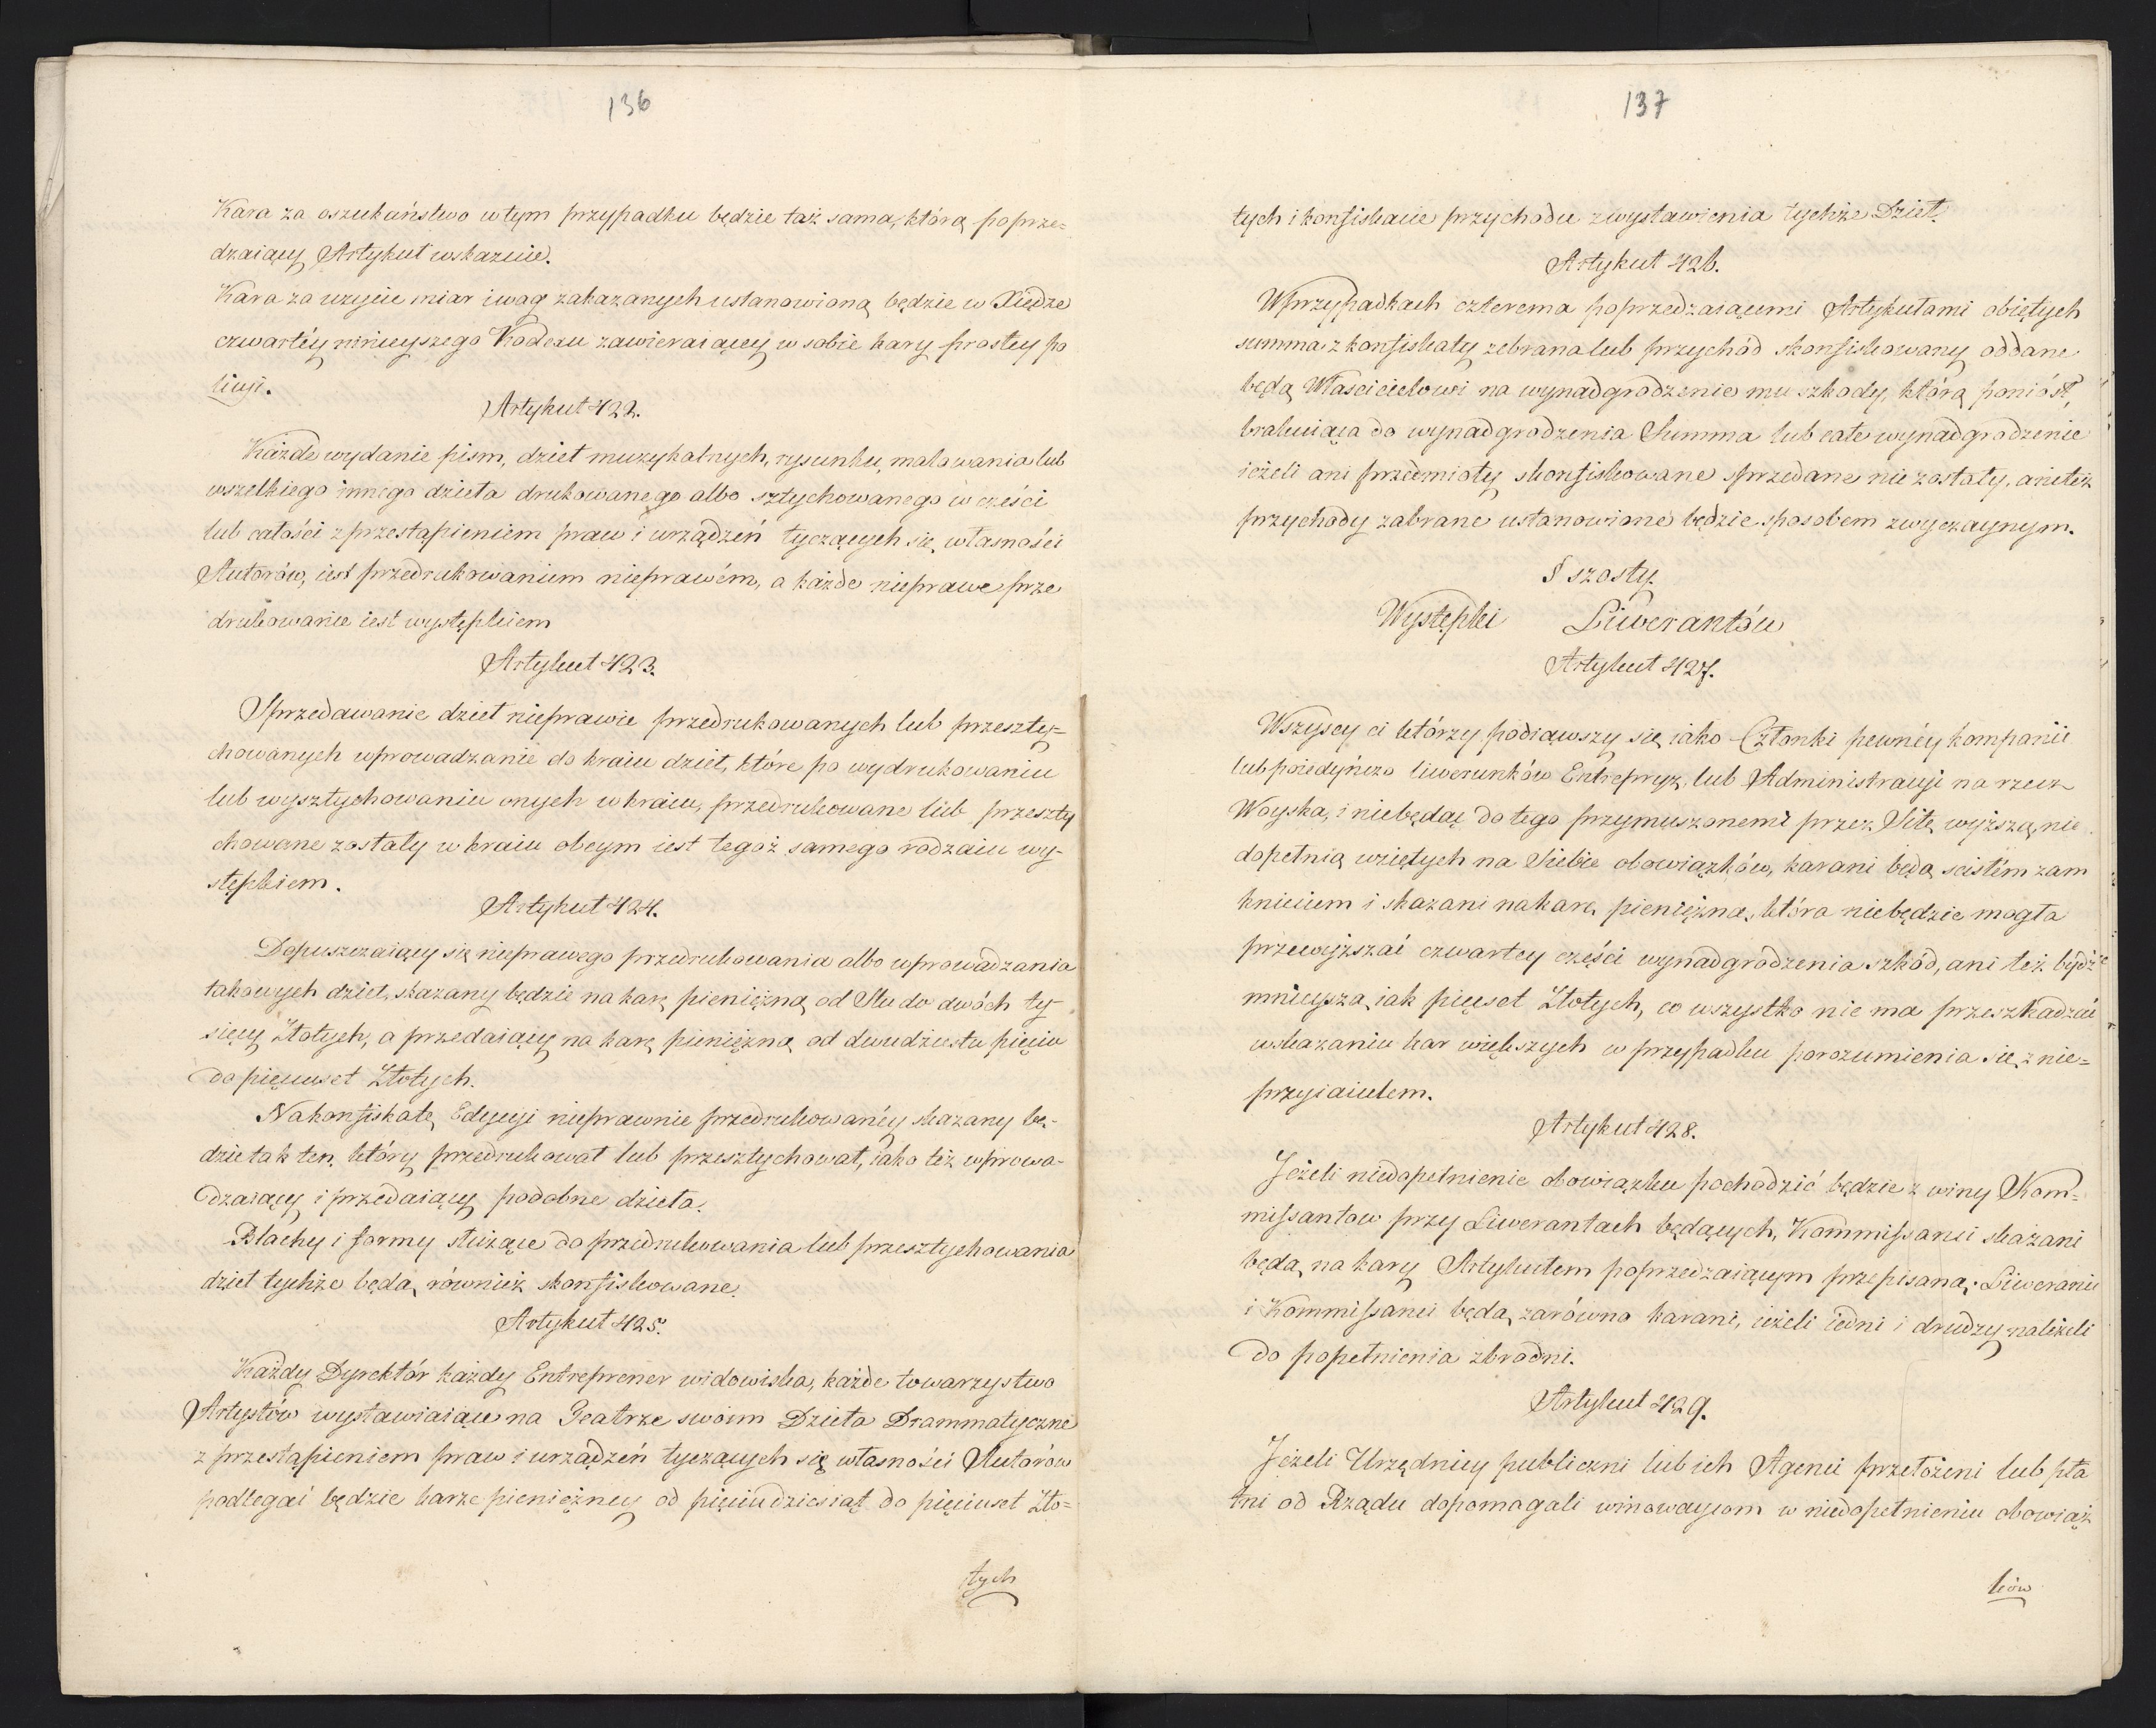 136
Kara za oszukaństwo w tym przypadku będzie taż sama, którą poprze=
dzaiący Artykuł wskazuie.
Kara za użycie miar i wag zakazanych ustanowioną będzie w Xiędze
czwartéy ninieyszego Kodexu zawieraiącey w sobie kary prostey po
licyi.
Artykuł 422.
Każde wydanie pism, dzieł muzykalnych, rysunku, malowania lub
wszelkiego innego dzieła drukowanego albo sztychowanego w części
lub całości z przestąpieniem praw i urządzeń tyczących się własności
Autorów, iest przedrukowaniem nieprawém, a każde nieprawe prze
drukowanie iest występkiem
Artykuł 423.
Sprzedawanie dzieł nieprawie przedrukowanych lub przeszty=
chowanych wprowadzanie do kraiu dzieł, które po wydrukowaniu
lub wysztychowaniu onych w kraiu, przedrukowane lub przeszty
chowane zostały w kraiu obcym iest tegoż samego rodzaiu wy-
stępkiem.
Artykuł 424.
Dopuszczaiący się nieprawego przedrukowania albo wprowadzania
takowych dzieł, skazany będzie na karę pieniężną od Stu do dwóch ty-
sięcy Złotych, a przedaiący na karę pieniężną od dwudziestu pięciu
do pięciuset Złotych.
Na konfiskatę Edycyi nieprawnie przedrukowanéy skazany bę-
dzie tak ten, który przedrukował lub przesztychował, iako też wprowa-
dzaiący i przedaiący podobne dzieła.
Blachy i formy służące do przedrukowania lub przesztychowania
dzieł tychże będą również skonfiskowane.
Artykuł 425.
Każdy Dyrektór każdy Entreprener widowiska, każde towarzystwo
Artystów wystawiaiące na Teatrze swoim Dzieła Drammatyczne
z przestąpieniem praw i urządzeń tyczących się własności Autorów
podlegać będzie karze pieniężney od pięciudziesiąt do pięciuset Zło=
tych
137
tych i konfiskacie przychodu z wystawienia tychże Dzieł.
Artykuł 426.
W przypadkach czterema poprzedzaiącemi Artykułami obiętych
summa z konfiskaty zebrana lub przychód skonfiskowany oddane
będą Właścicielowi na wynadgrodzenie mu szkody, którą poniósł,
brakuiąca do wynadgrodzenia Summa lub całe wynadgrodzenie
ieżeli ani przedmioty skonfiskowane sprzedane nie zostały, ani też
przychody zabrane ustanowione będzie sposobem zwyczaynym.
§ szósty
Występki Liwerantów
Artykuł 427.
Wszyscy ci którzy podiąwszy się iako Członki pewnéy kompanii
lub poiedyńczo liwerunków Entrepryz, lub Administracyi na rzecz
Woyska, i niebędąc do tego przymuszonemi przez Siłę wyższą, nie
dopełnią wziętych na Siebie obowiązków, karani będą scisłém zam
knieciem i skazani na karę pieniężną, która niebędzie mogła
przewyższać czwartey części wynadgrodzenia szkód, ani też bydź
mnieysza, iak pięćset Złotych, co wszystko nie ma przeszkadzać
wskazaniu kar większych w przypadku porozumienia się z nie=
przyiacielem.
Artykuł 428.
Jeżeli niedopełnienie obowiązku pochodzić będzie z winy Kom=
missantow przy Liwerantach będących, Kommissanci skazani
będą na kary Artykułem poprzedzaiącym przepisaną; Liweranci
i Kommissanci będą zarówno karani, ieżeli iedni i drudzy należeli
do popełnienia zbrodni.
Artykuł 429.
Jeżeli Urzędnicy publiczni lub ich Agenci przełożeni lub pła
tni od Rządu dopomagali winowaycom w niedopełnieniu obowiąz
ków